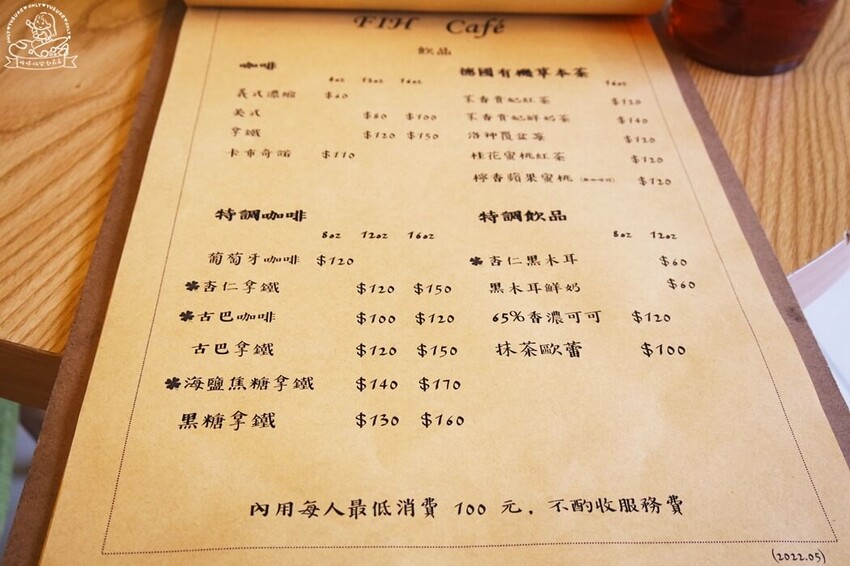 FIH Café
飲品
咖啡
8oz 12oz 16oz
義式濃縮 $60
美式 $80 $100
拿鐵 $120 $150
卡布奇諾 $110
德國有機草本茶
16oz
不香貴妃紅茶 $120
不香貴妃鮮奶茶 $140
洛神覆盆莓 $120
桂花蜜桃紅茶 $120
檸香蘋果蜜桃 $120
特調咖啡
8oz 12oz 16oz
葡萄牙咖啡 $120
杏仁拿鐵 $120 $150
古巴咖啡 $100 $120
古巴拿鐵 $120 $150
海鹽焦糖拿鐵 $140 $170
黑糖拿鐵 $130 $160
特調飲品
8oz 12oz
杏仁黑木耳 $60
黑木耳鮮奶 $60
65%香濃可可 $120
抹茶歐蕾 $100
內用每人最低消費 100 元，不酌收服務費
(2022.05)